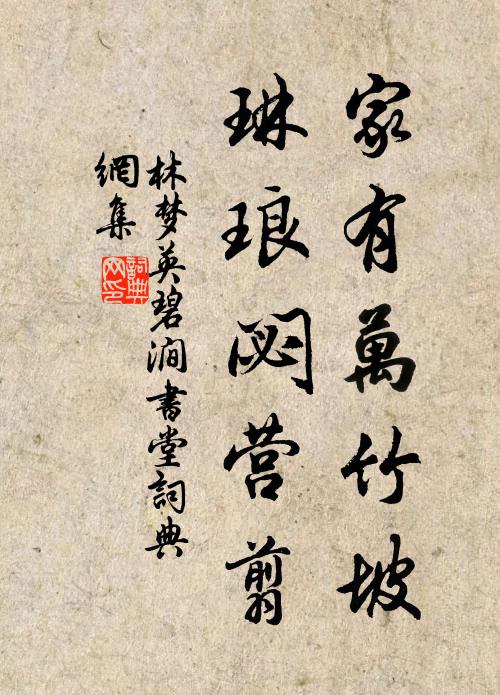 家有萬竹坡
琳琅閟营翦
林梦英碧澗書堂詞典
網集
詞典
网印